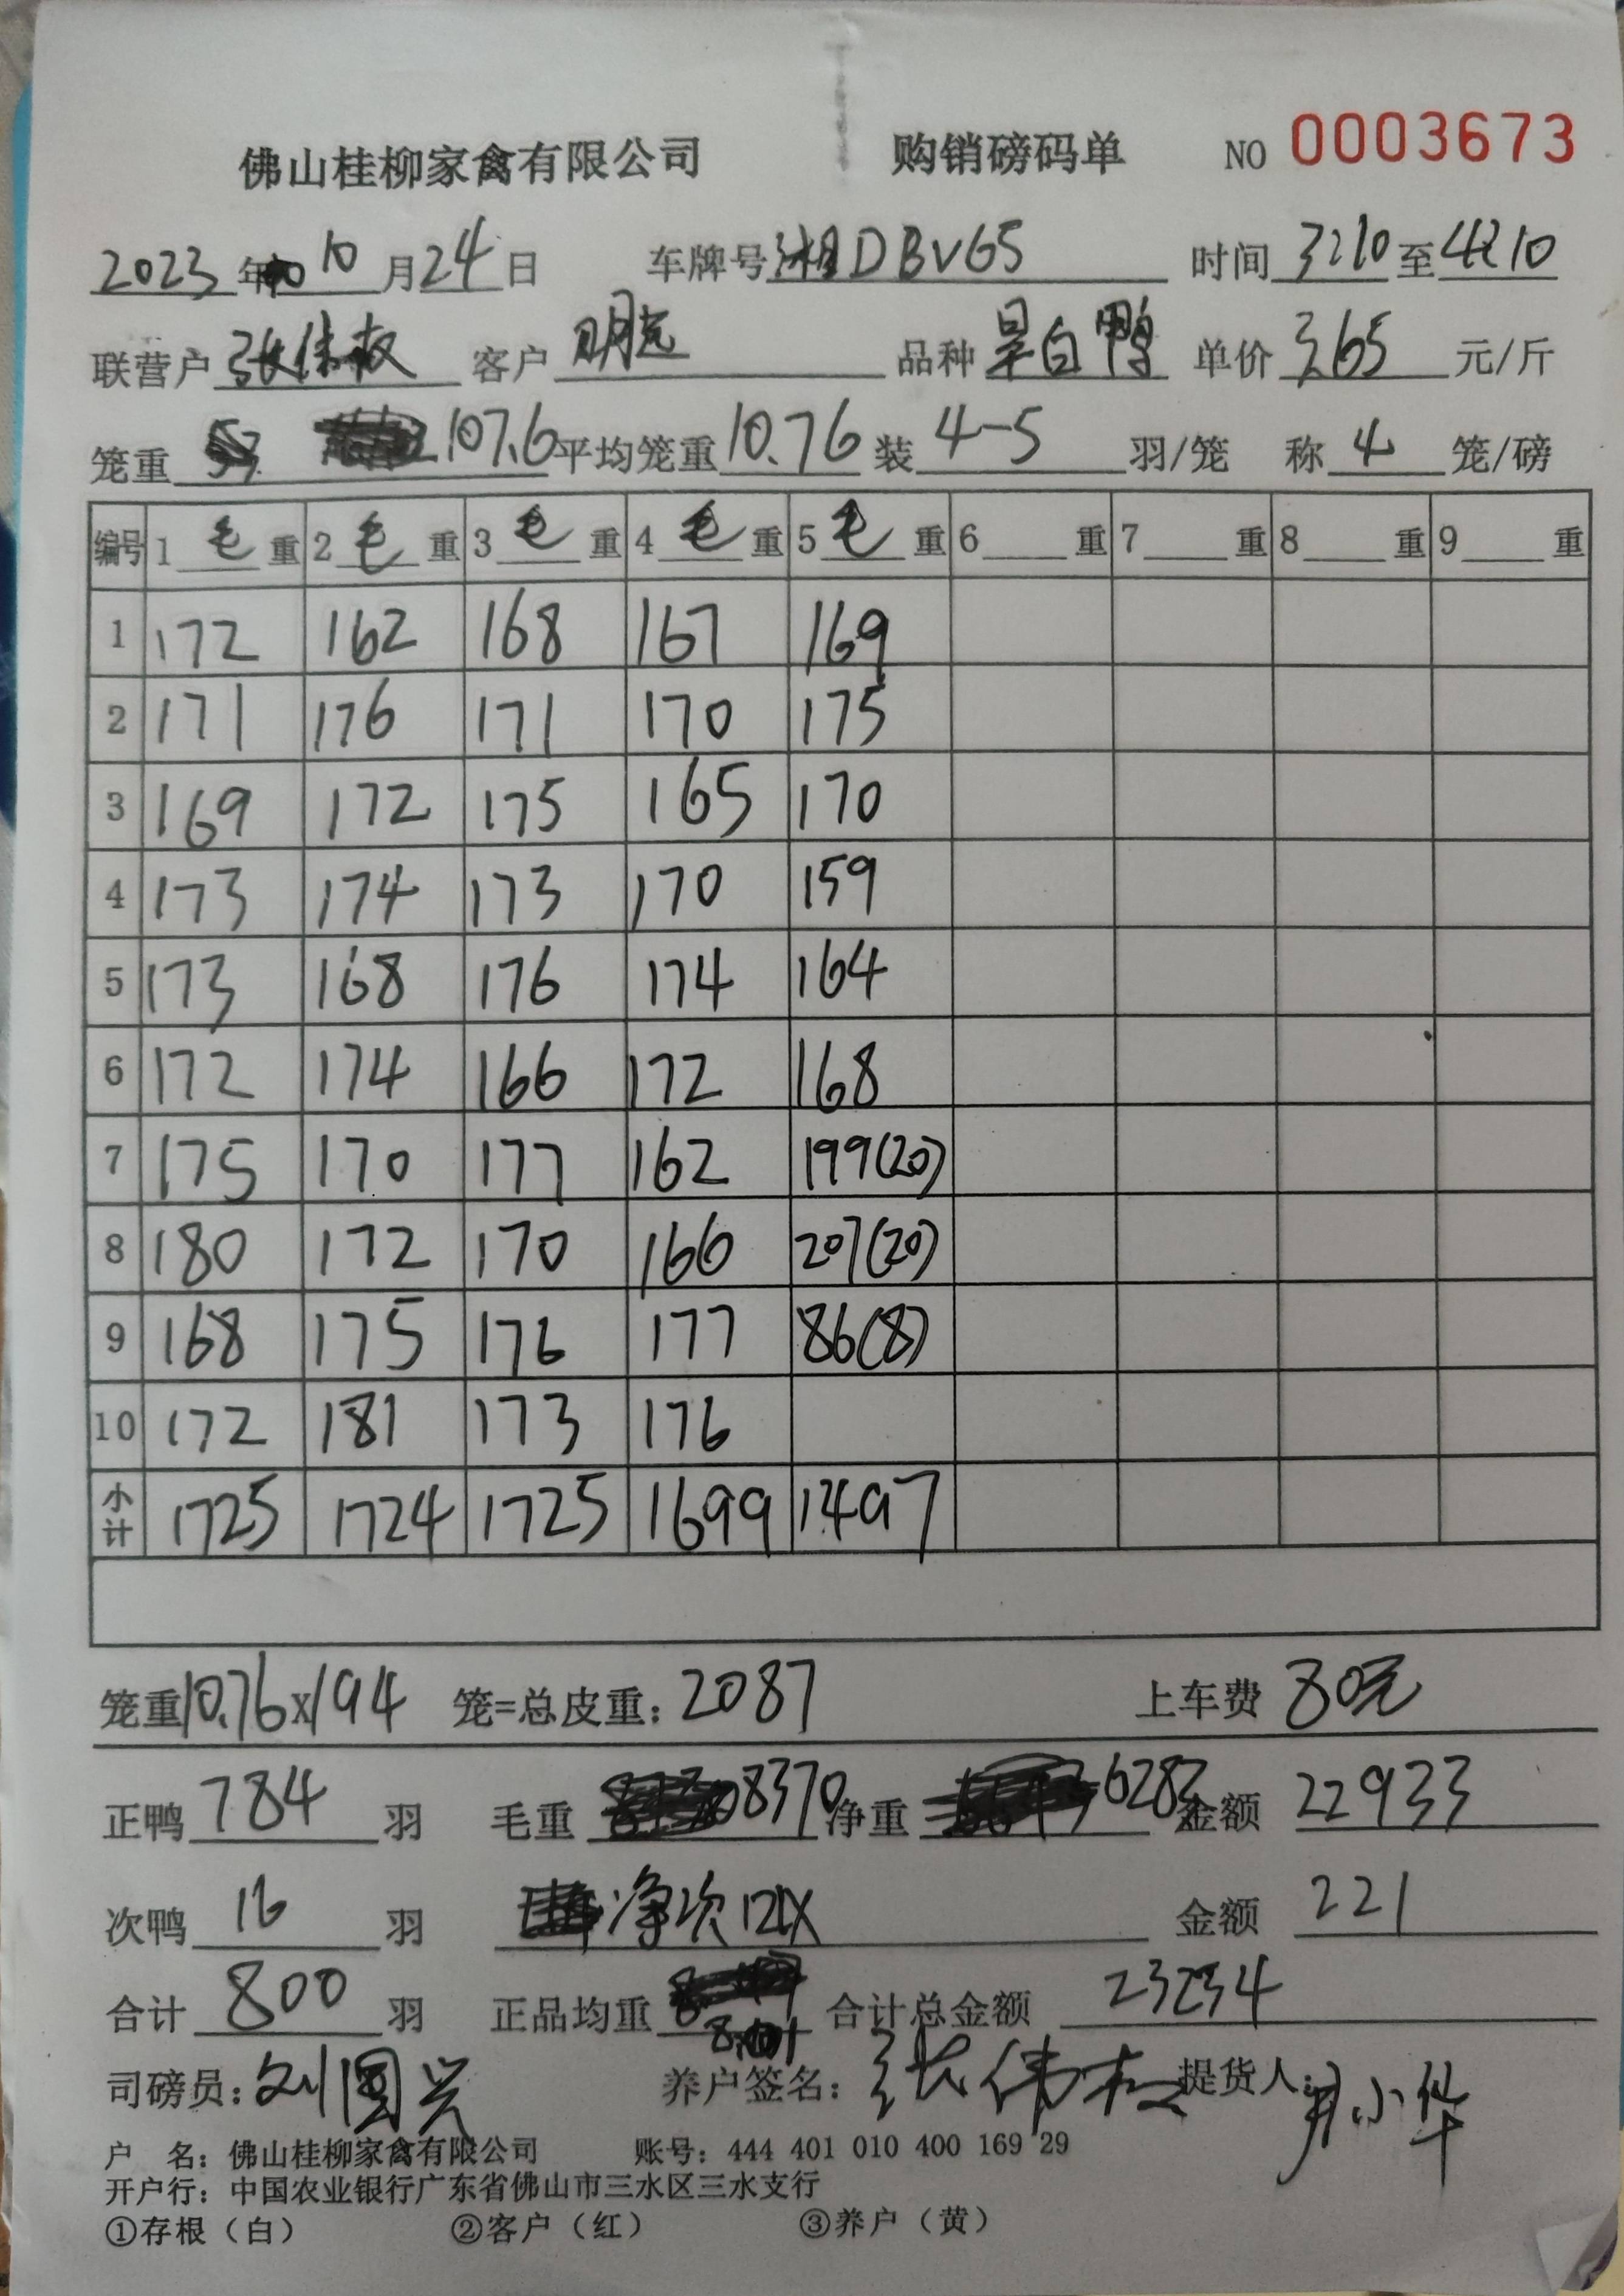 佛山桂柳家禽有限公司 购销磅码单 NO 0003673
2023年 10月24日 车牌号 湘DBV65 时间 3:10 至 4:10
联营户 张伟权 客户 明 品种 旱白鸭 单价 3.65 元/斤
笼重 107.6 平均笼重 10.76 装 4-5 羽/笼 称 4 笼/磅
编号 1 毛 重 2 毛 重 3 毛 重 4 毛 重 5 毛 重 6 重 7 重 8 重 9 重
1 172 162 168 167 169
2 171 176 171 170 175
3 169 172 175 165 170
4 173 174 173 170 159
5 173 168 176 174 164
6 172 174 166 172 168
7 175 170 177 162 199(20)
8 180 172 170 166 207(20)
9 168 175 176 177 86(8)
10 172 181 173 176
小计 1725 1724 1725 1699 1497
笼重 10.76×194 笼=总皮重: 2087 上车费 80元
正鸭 784 羽 毛重 8370 净重 6283 金额 22933
次鸭 16 羽 净次 121X 金额 221
合计 800 羽 正品均重 合计总金额 23234
司磅员: 刘国兴 养户签名: 张伟权 提货人: 小华
户 名: 佛山桂柳家禽有限公司 账号: 444 401 010 400 169 29
开户行: 中国农业银行广东省佛山市三水区三水支行
①存根（白） ②客户（红） ③养户（黄）